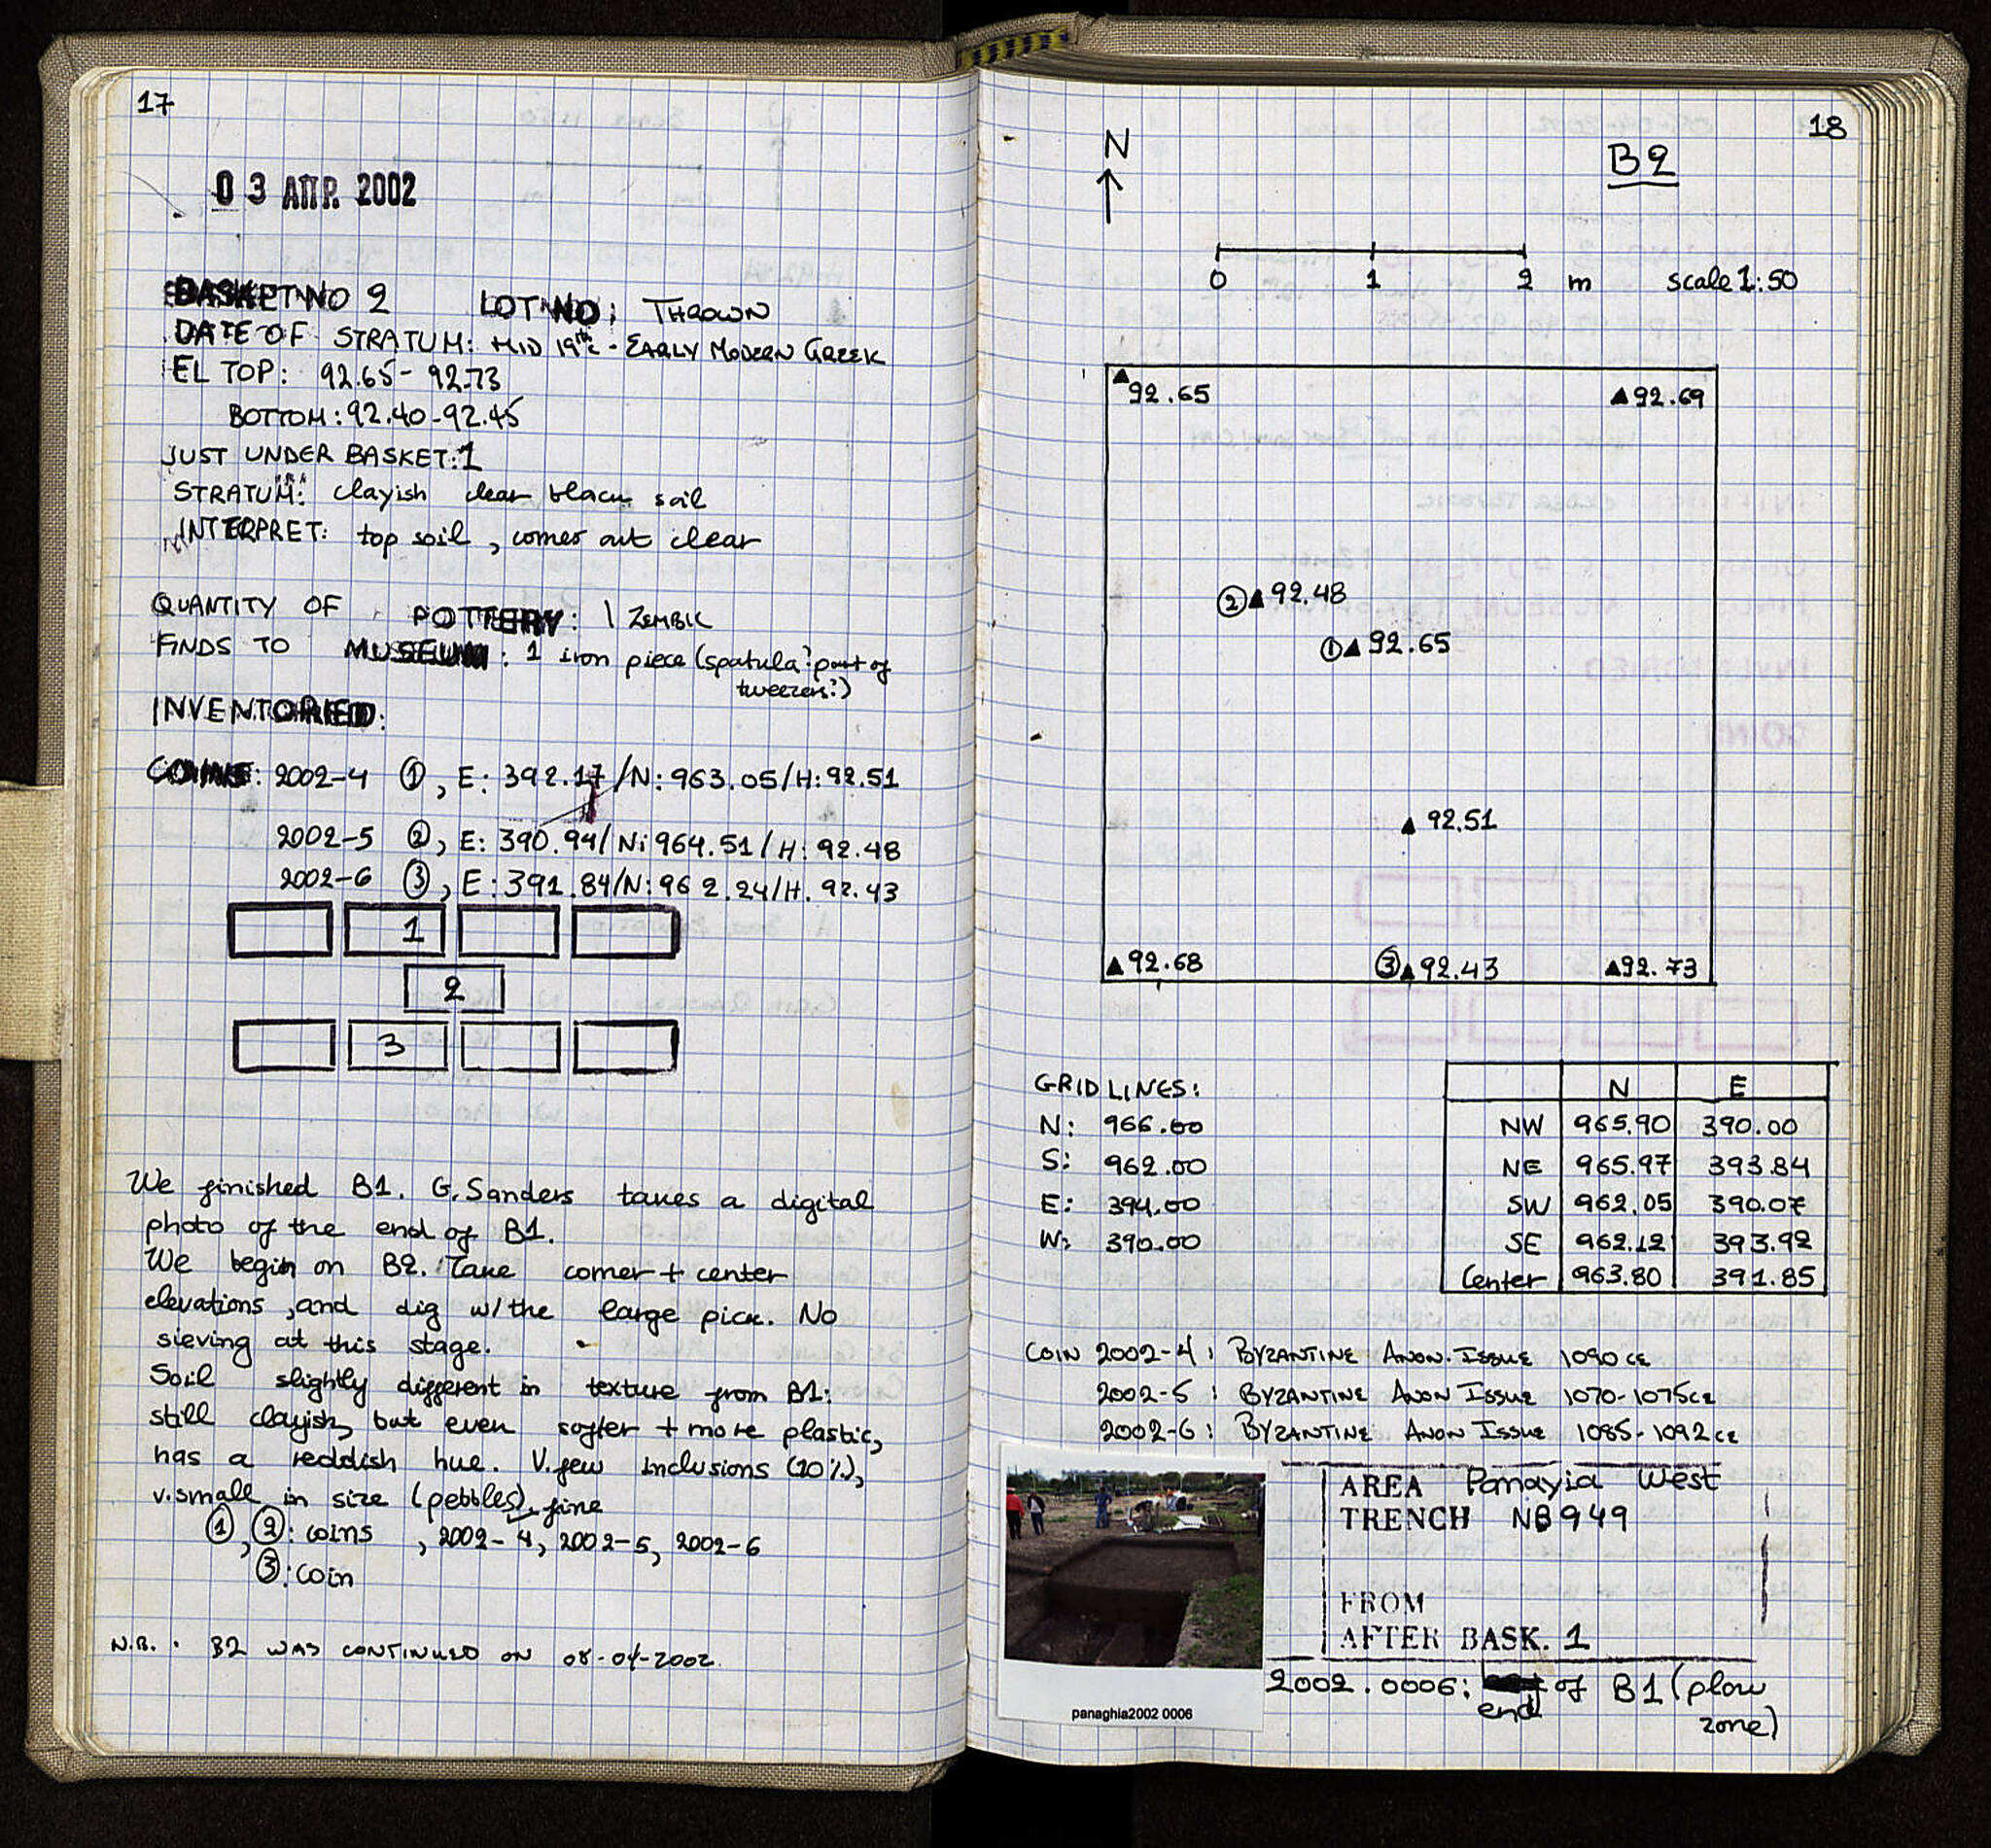 17
03 ΑΠΡ. 2002
BASKET NO 2 LOT NO: THROWN
DATE OF STRATUM: MID 19th c - EARLY MODERN GREEK
EL TOP: 92.65 - 92.73
BOTTOM: 92.40-92.45
JUST UNDER BASKET: 1
STRATUM: clayish clear black soil
INTERPRET: top soil, comes out clear
QUANTITY OF POTTERY: 1 ZEMBIL
FINDS TO MUSEUM: 1 iron piece (spatula? part of
tweezers?)
INVENTORIED:
COINS: 2002-4 ①, E: 392.17/N: 963.05/H: 92.51
2002-5 ②, E: 390.94/N: 964.51/H: 92.48
2002-6 ③, E: 391.84/N: 962.24/H. 92.43
1
2
3
We finished B1. G. Sanders takes a digital
photo of the end of B1.
We begin on B2. Take corner + center
elevations, and dig w/the large pick. No
sieving at this stage.
Soil slightly different in texture from B1:
still clayish, but even softer + more plastic,
has a reddish hue. V. few inclusions (10%),
v. small in size (pebbles), fine
①, ②: coins , 2002-4, 2002-5, 2002-6
③: coin
N.B. : B2 WAS CONTINUED ON 08-04-2002.
18
B2
N
0 1 2 m scale 1:50
92.65 92.69
② 92.48
① 92.65
92.51
92.68 ③ 92.43 92.73
GRID LINES:
N: 966.00
S: 962.00
E: 394.00
W: 390.00
N E
NW 965.90 390.00
NE 965.97 393.84
SW 962.05 390.07
SE 962.12 393.92
Center 963.80 391.85
COIN 2002-4: BYZANTINE ANON. ISSUE 1090 CE
2002-5: BYZANTINE ANON ISSUE 1070-1075 CE
2002-6: BYZANTINE ANON ISSUE 1085-1092 CE
AREA Panayia West
TRENCH NB949
FROM
AFTER BASK. 1
2002.0006: end of B1 (plow
zone)
panaghia2002 0006